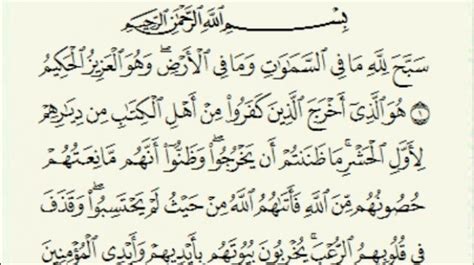 بِسْمِ ٱللَّهِ ٱلرَّحْمَٰنِ ٱلرَّحِيمِ
سَبَّحَ لِلَّهِ مَا فِي ٱلسَّمَٰوَٰتِ وَمَا فِي ٱلْأَرْضِۖ وَهُوَ ٱلْعَزِيزُ ٱلْحَكِيمُ
١ هُوَ ٱلَّذِيٓ أَخْرَجَ ٱلَّذِينَ كَفَرُوا۟ مِنْ أَهْلِ ٱلْكِتَٰبِ مِن دِيَٰرِهِمْ
لِأَوَّلِ ٱلْحَشْرِۚ مَا ظَنَنتُمْ أَن يَخْرُجُوا۟ۖ وَظَنُّوٓا۟ أَنَّهُم مَّانِعَتُهُمْ
حُصُونُهُم مِّنَ ٱللَّهِ فَأَتَىٰهُمُ ٱللَّهُ مِنْ حَيْثُ لَمْ يَحْتَسِبُوا۟ۖ وَقَذَفَ
فِي قُلُوبِهِمُ ٱلرُّعْبَۚ يُخْرِبُونَ بُيُوتَهُم بِأَيْدِيهِمْ وَأَيْدِي ٱلْمُؤْمِنِينَ